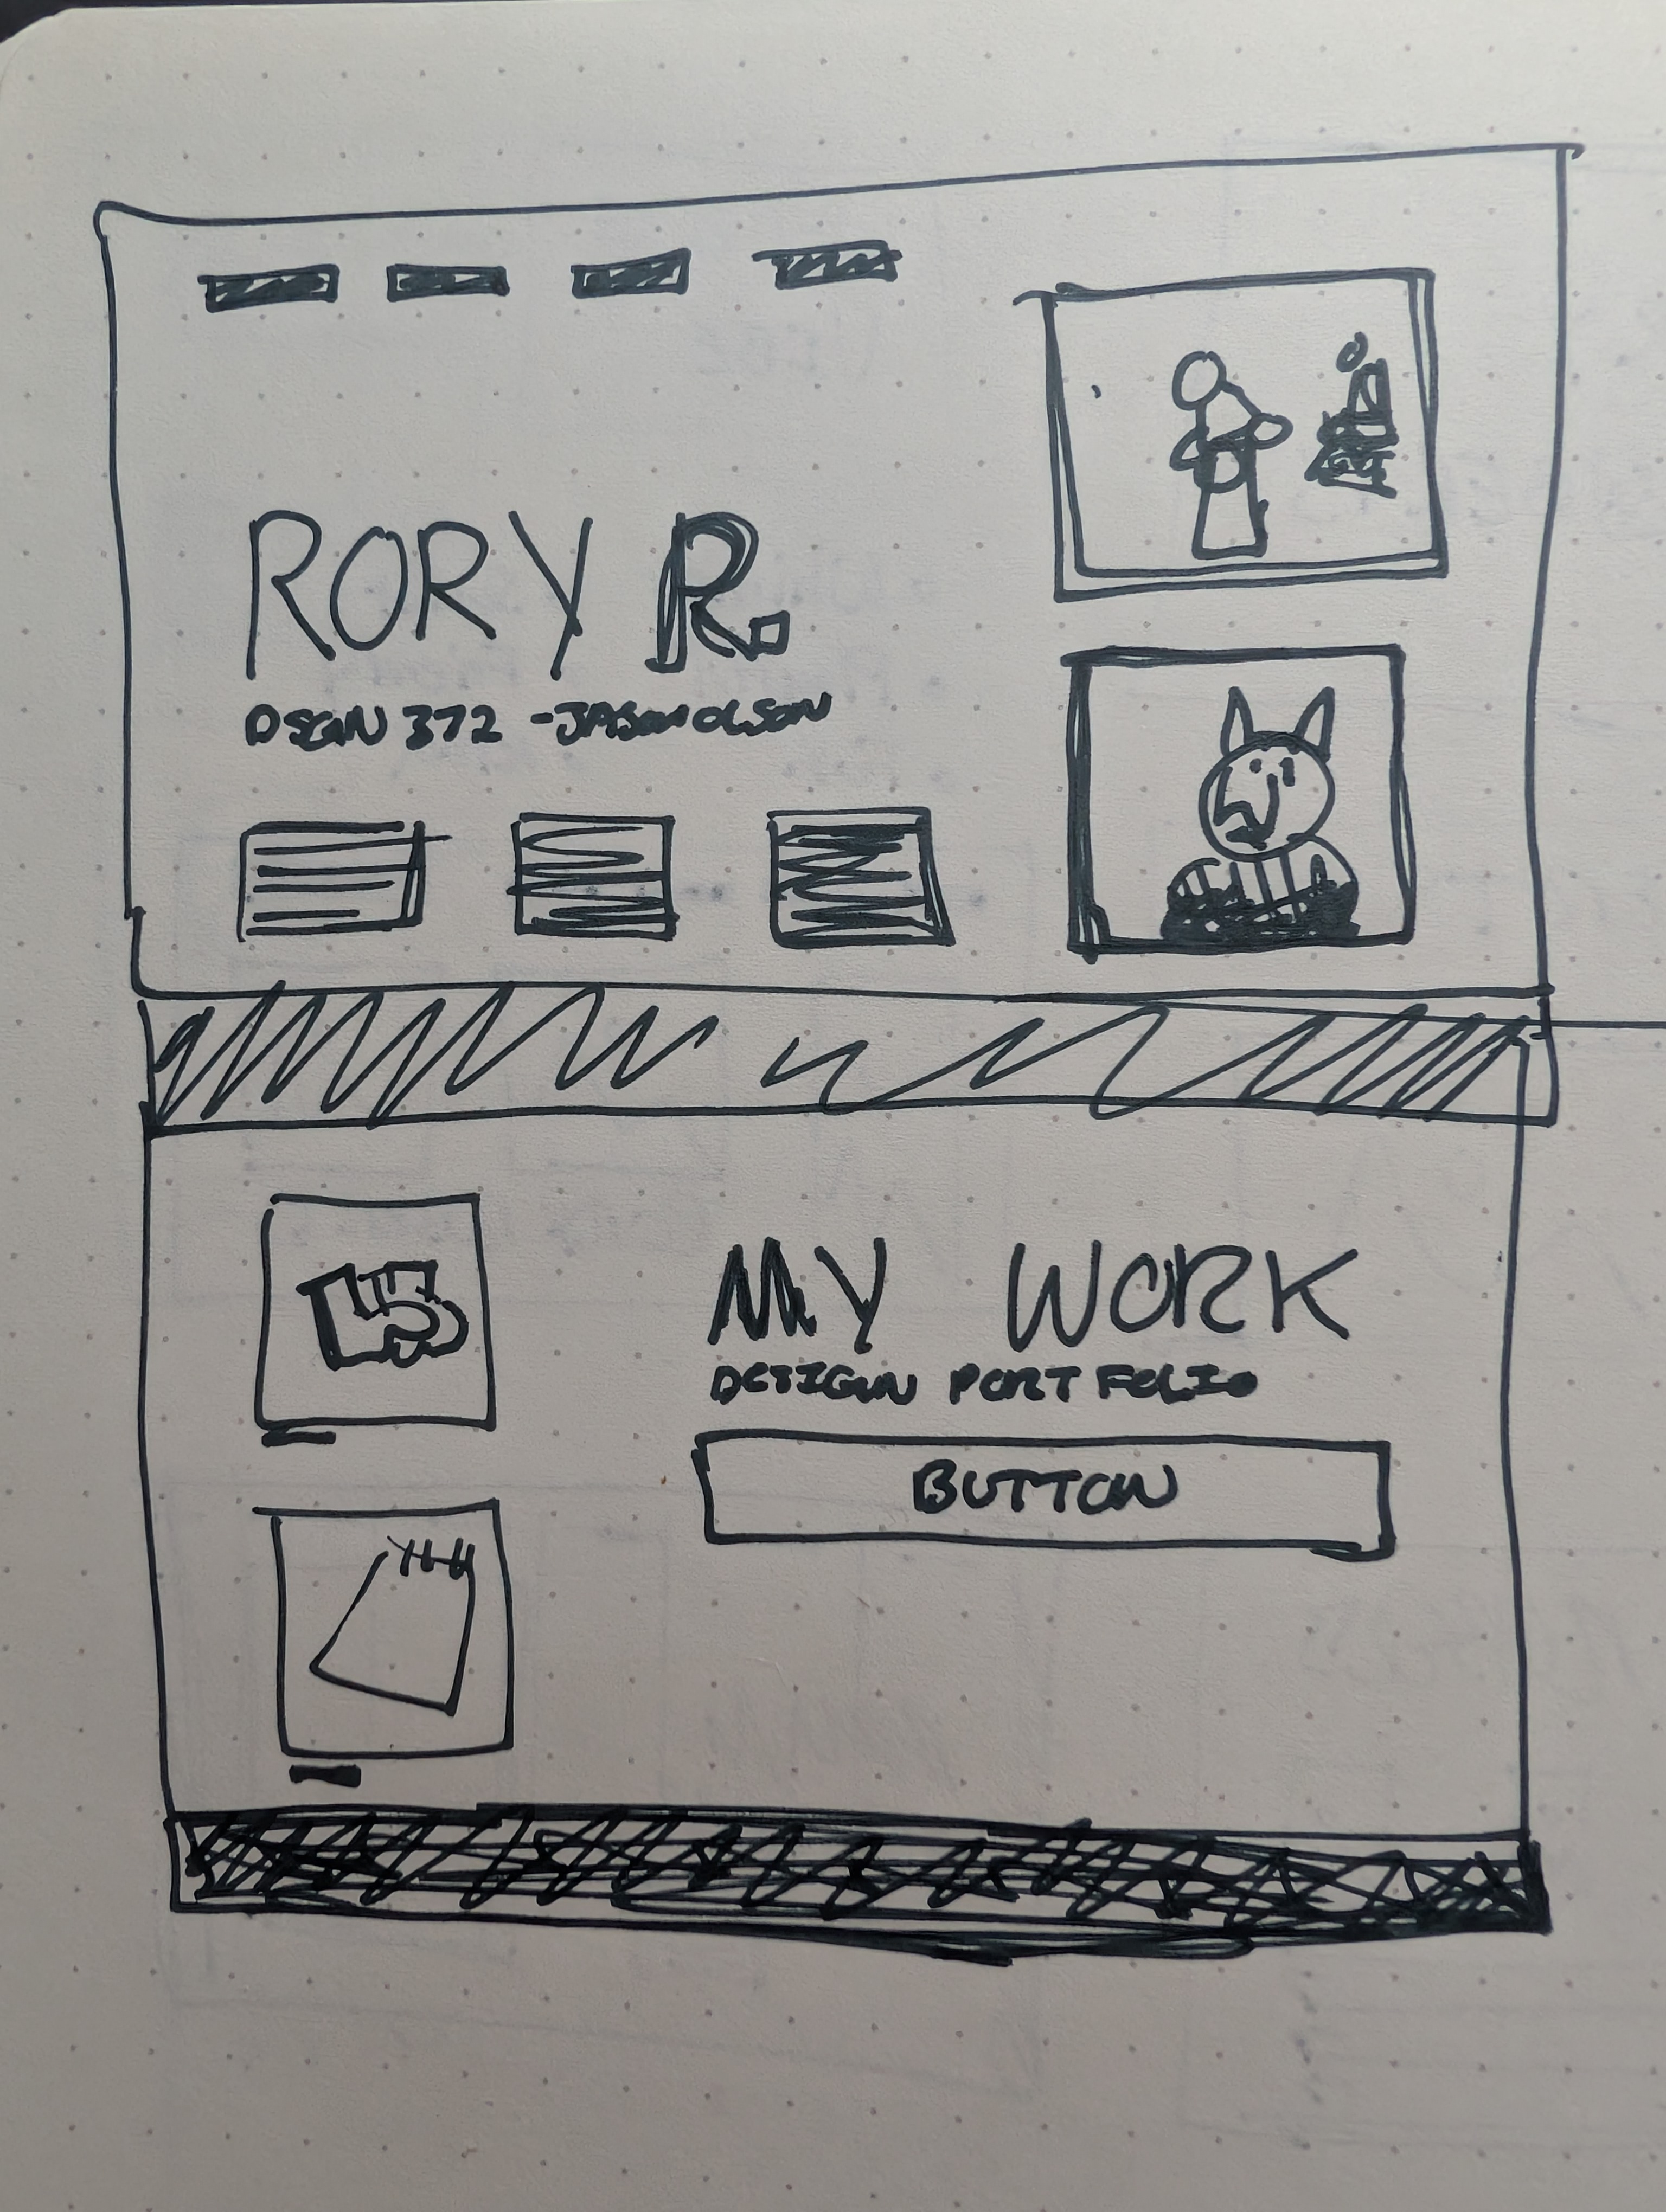 RORY R.
DSGN 372 - JASON OLSON
15
MY WORK
DESIGN PORTFOLIO
BUTTON